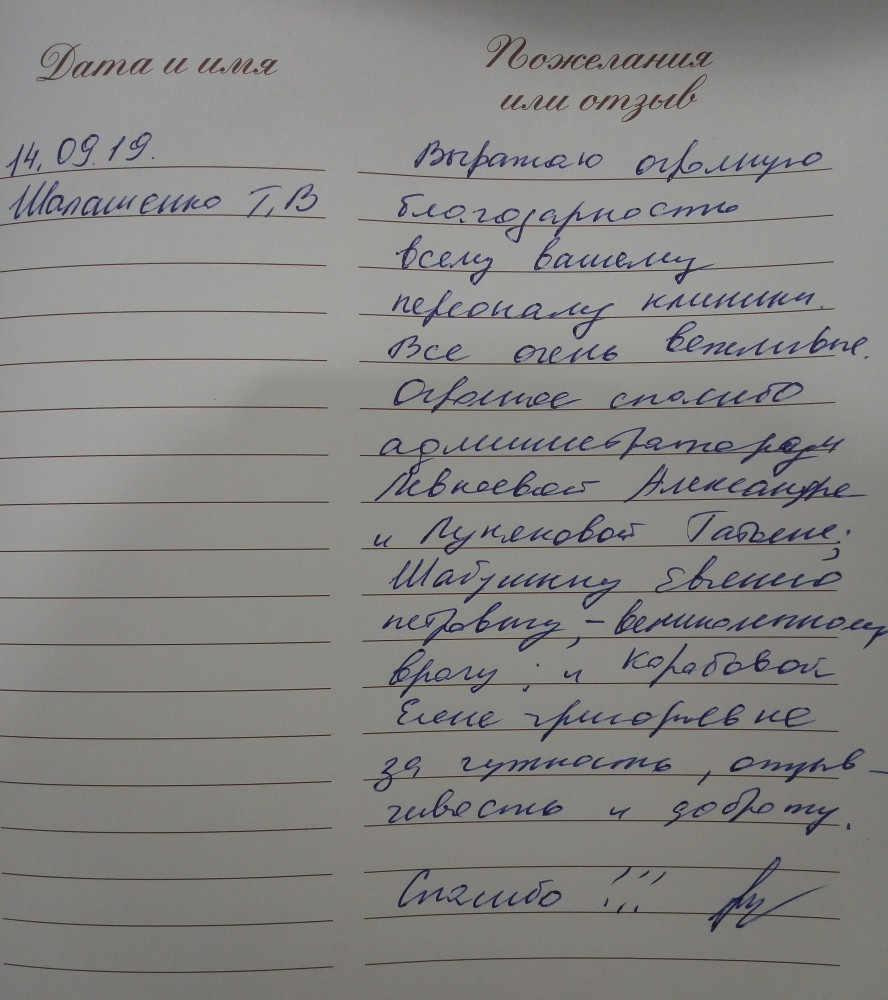 Дата и имя
Пожелания
или отзыв
14.09.19.
Шалашенко Т,В
Выражаю огромную
благодарность
всему вашему
персоналу клиники.
Все очень вежливые.
Огромное спасибо
администраторам
Александре
и Луняковой Татьяне;
Шабунину Евгению
петровичу, – великолепному
врачу ; и Карабовой
Елене григорьевне
за чуткость, отзыв–
чивость и доброту.
Спасибо !!!